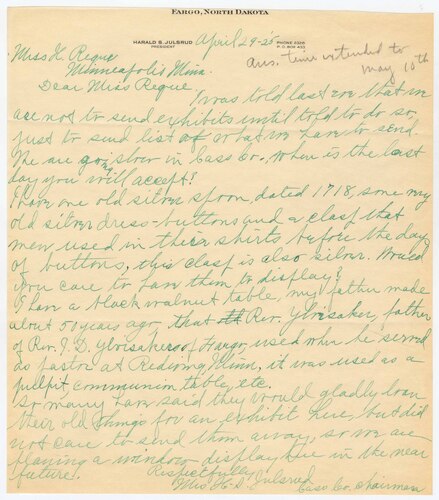 FARGO, NORTH DAKOTA
HARALD S. JULSRUD
PRESIDENT
PHONE 232R
P.O. BOX 453
April 29-25
ans. time extended to
May 10th
Miss H. Reque
Minneapolis Minn.
Dear Miss Reque
I was told last eve that we
are not to send exhibits until told to do so,
just to send list of what we have to send.
We are going slow in Cass Co. When is the last
day you will accept?
I have one old silver spoon dated 1718, some very
old silver dress-buttons and a clasp that
men used in their shirts before the day
of buttons, this clasp is also silver. Would
you care to have them to display?
I have a black walnut table, my father made
about 51 years ago that Rev. Ylvisaker, father
of Rev. J. D. Ylvisaker of Fargo, used when he served
as pastor at Redwing Minn, it was used as a
pulpit communion table, etc.
So many have said they would gladly loan
their old things for an exhibit here, but did
not care to send them away, so we are
planing a window display here in the near
future.
Respectfully
Mrs H. S. Julsrud
Cass Co. Chairman